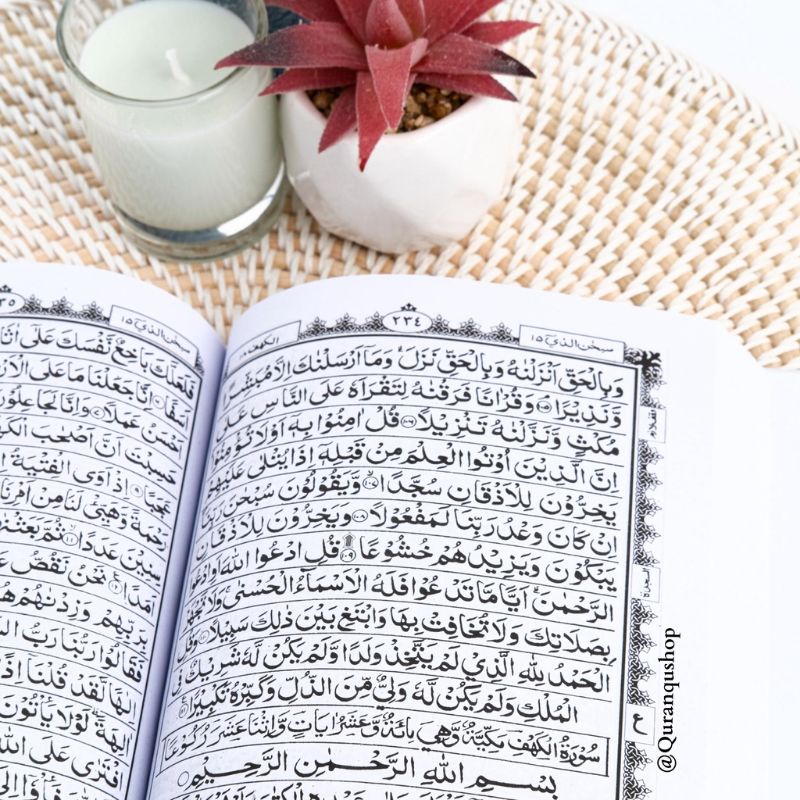 الكهف ١٨
٢٣٤
سبحٰن الذي ١٥
وَبِالْحَقِّ اَنْزَلْنٰهُ وَبِالْحَقِّ نَزَلَ ؕ وَمَاۤ اَرْسَلْنٰكَ اِلَّا مُبَشِّرًا
وَّنَذِيْرًا ﴿١٠٥﴾ وَقُرْاٰنًا فَرَقْنٰهُ لِتَقْرَاَهٗ عَلَى النَّاسِ عَلٰى
مُكْثٍ وَّنَزَّلْنٰهُ تَنْزِيْلًا ﴿١٠٦﴾ قُلْ اٰمِنُوْا بِهٖۤ اَوْ لَا تُؤْمِنُوْا
اِنَّ الَّذِيْنَ اُوْتُوا الْعِلْمَ مِنْ قَبْلِهٖۤ اِذَا يُتْلٰى عَلَيْهِمْ
يَخِرُّوْنَ لِلْاَذْقَانِ سُجَّدًا ﴿١٠٧﴾ وَّيَقُوْلُوْنَ سُبْحٰنَ رَبِّنَاۤ
اِنْ كَانَ وَعْدُ رَبِّنَا لَمَفْعُوْلًا ﴿١٠٨﴾ وَيَخِرُّوْنَ لِلْاَذْقَانِ
يَبْكُوْنَ وَيَزِيْدُهُمْ خُشُوْعًا ﴿١٠٩﴾ قُلِ ادْعُوا اللّٰهَ اَوِ ادْعُوا
الرَّحْمٰنَ ؕ اَيًّا مَّا تَدْعُوْا فَلَهُ الْاَسْمَآءُ الْحُسْنٰى ۚ وَلَا تَجْهَرْ
بِصَلَاتِكَ وَلَا تُخَافِتْ بِهَا وَابْتَغِ بَيْنَ ذٰلِكَ سَبِيْلًا ﴿١١٠﴾ وَقُلِ
الْحَمْدُ لِلّٰهِ الَّذِيْ لَمْ يَتَّخِذْ وَلَدًا وَّلَمْ يَكُنْ لَّهٗ شَرِيْكٌ فِى
الْمُلْكِ وَلَمْ يَكُنْ لَّهٗ وَلِيٌّ مِّنَ الذُّلِّ وَكَبِّرْهُ تَكْبِيْرًا ﴿١١١﴾
سُوْرَةُ الْكَهْفِ مَكِّيَّةٌ وَّهِيَ مِائَةٌ وَّعَشْرُ اٰيَاتٍ وَّاثْنَا عَشَرَ رُكُوْعًا
بِسْمِ اللّٰهِ الرَّحْمٰنِ الرَّحِيْمِ
السجدة
ع
سبحٰن الذي ١٥
فَلَعَلَّكَ بَاخِعٌ نَّفْسَكَ عَلٰۤى
اَسَفًا ﴿٦﴾ اِنَّا جَعَلْنَا مَا عَلَى
اَحْسَنُ عَمَلًا ﴿٧﴾ وَاِنَّا لَجٰعِلُوْنَ
حَسِبْتَ اَنَّ اَصْحٰبَ
عَجَبًا ﴿٩﴾ اِذْ اَوَى الْفِتْيَةُ
رَحْمَةً وَّهَيِّئْ لَنَا مِنْ اَمْرِنَا
سِنِيْنَ عَدَدًا ﴿١١﴾ ثُمَّ
اَمَدًا ﴿١٢﴾ نَحْنُ نَقُصُّ
بِرَبِّهِمْ وَزِدْنٰهُمْ
فَقَالُوْا رَبُّنَا رَبُّ
اِلٰهًا لَّقَدْ قُلْنَاۤ اِذًا
اٰلِهَةً ؕ لَوْلَا يَاْتُوْنَ
افْتَرٰى عَلَى اللّٰهِ
@Quranqushop